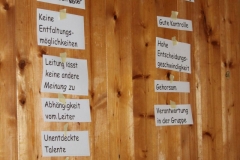 Keine
Entfaltungs-
möglichkeiten
Leitung lässt
keine andere
Meinung zu
Abhängigkeit
vom Leiter
Unentdeckte
Talente
Gute Kontrolle
Hohe
Entscheidungs-
geschwindigkeit
Gehorsam
Verantwortung
in der Gruppe